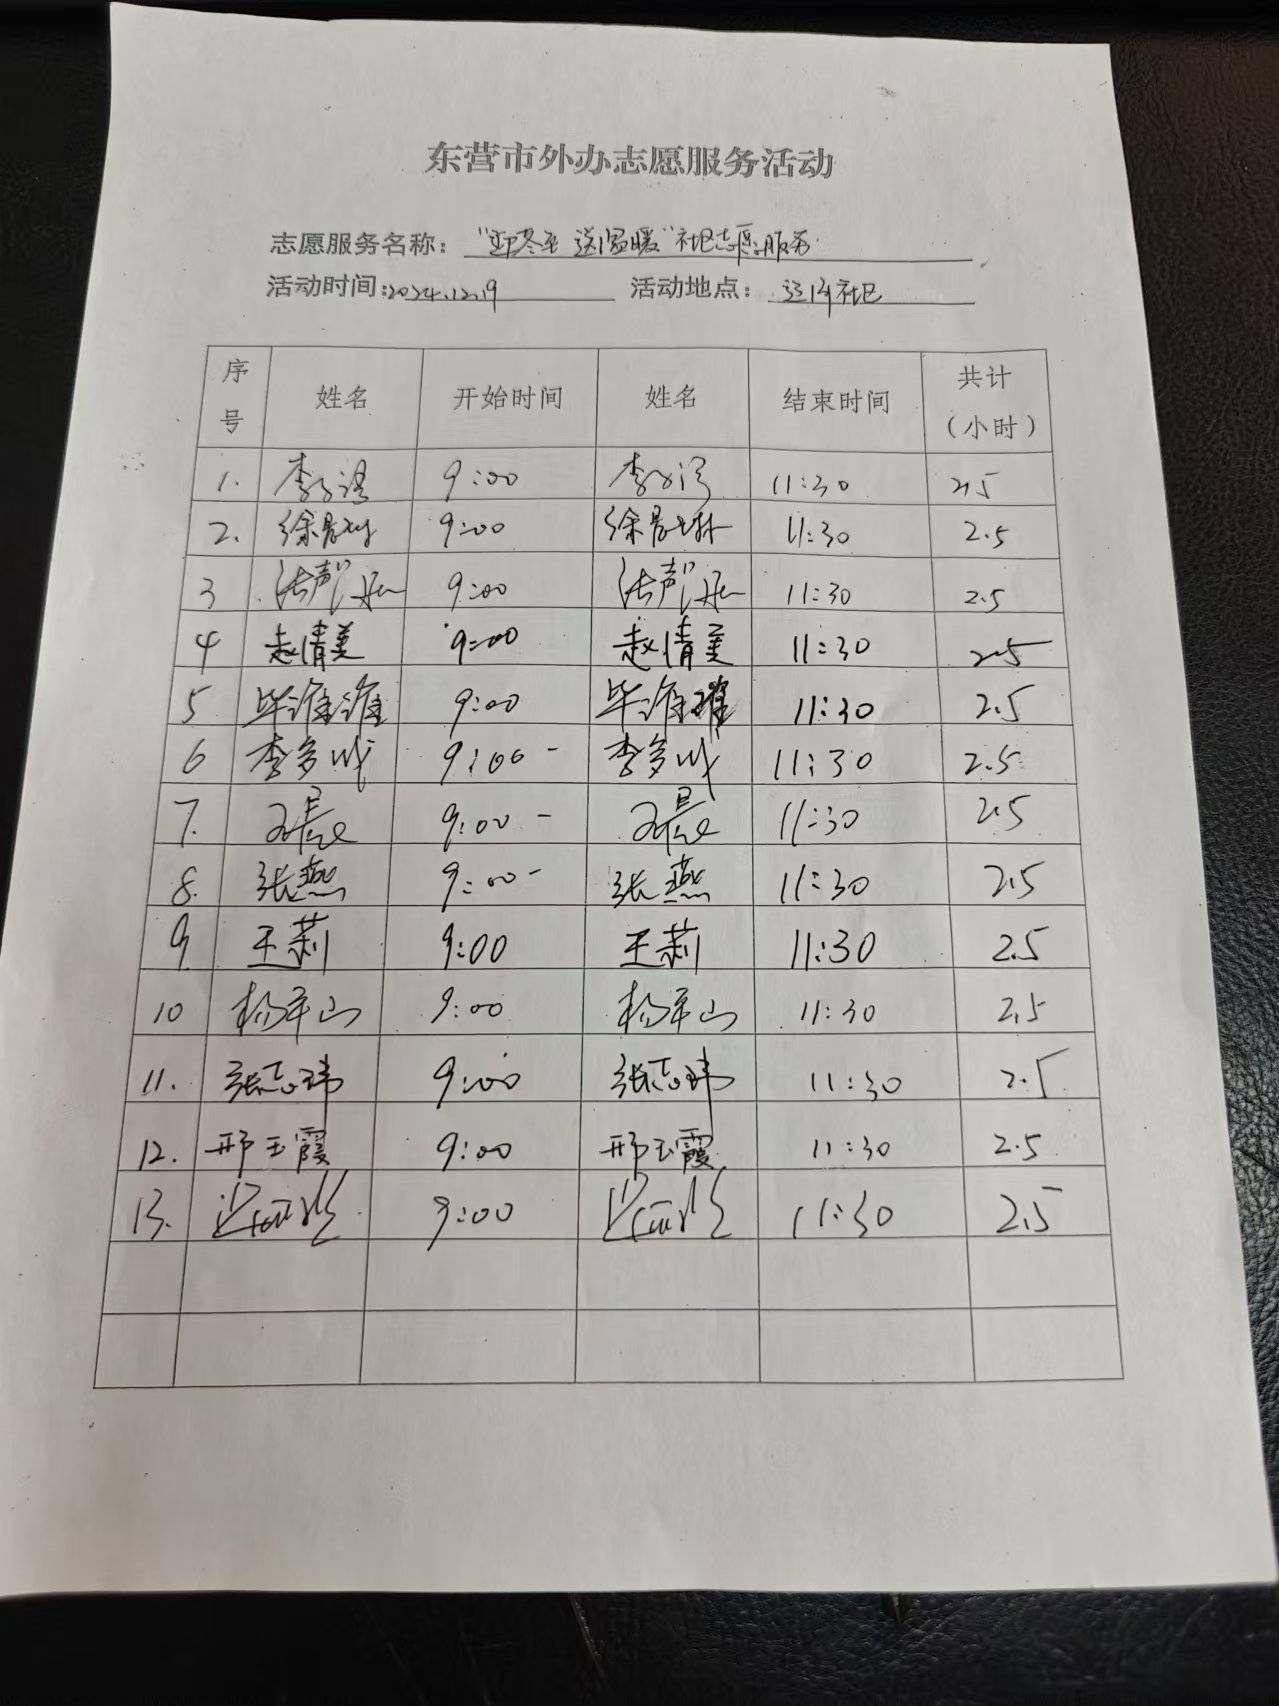 东营市外办志愿服务活动
志愿服务名称：“迎冬至 送温暖”社区志愿服务
活动时间:2024.12.19 活动地点： 社区
序号 姓名 开始时间 姓名 结束时间 共计（小时）
1. 李 9:00 李 11:30 2.5
2. 徐 9:00 徐 11:30 2.5
3 9:00 11:30 2.5
4 赵清美 9:00 赵清美 11:30 2.5
5 毕 9:00 毕 11:30 2.5
6 李多 9:00- 李多 11:30 2.5
7. 9:00- 11:30 2.5
8. 张燕 9:00- 张燕 11:30 2.5
9 王莉 9:00 王莉 11:30 2.5
10 杨军山 9:00 杨军山 11:30 2.5
11. 张志玮 9:00 张志玮 11:30 2.5
12. 邢玉霞 9:00 邢玉霞 11:30 2.5
13. 9:00 11:30 2.5